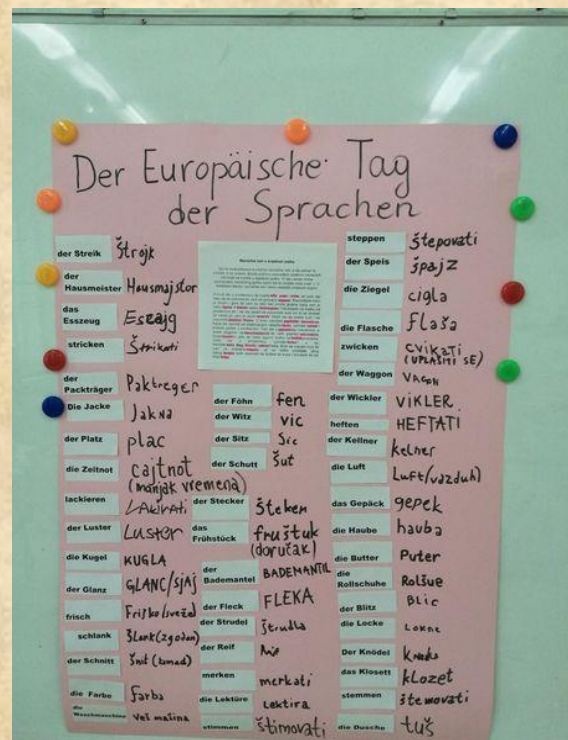 Der Europäische Tag
der Sprachen
der Streik štrojk
der Hausmeister Hausmajstor
das Esszeug Eszajg
stricken štrikati
der Packträger Paktreger
Die Jacke Jakna
der Platz plac
die Zeitnot cajtnot
(manjak vremena)
lackieren LAKIRATI
der Luster Luster
die Kugel KUGLA
der Glanz GLANC/SJAJ
frisch Friško/sveže
schlank šlank (zgodan)
der Schnitt šnit (komad)
die Farbe farba
die Waschmaschine veš mašina
der Föhn fen
der Witz vic
der Sitz sic
der Schutt šut
der Stecker šteker
das Frühstück fruštuk
(doručak)
der Bademantel BADEMANTIL
der Fleck FLEKA
der Strudel štrudla
der Reif
merken merkati
die Lektüre Lektira
stimmen štimovati
steppen štepovati
der Speis špajz
die Ziegel cigla
die Flasche flaša
zwicken cvikati
(UPLAŠITI SE)
der Waggon VAGON
der Wickler VIKLER
heften HEFTATI
der Kellner kelner
die Luft Luft (vazduh)
das Gepäck gepek
die Haube hauba
die Butter Puter
die Rollschuhe Rolšue
der Blitz BLIC
die Locke LOKNE
Der Knödel
das Klosett klozet
stemmen štemovati
die Dusche tuš